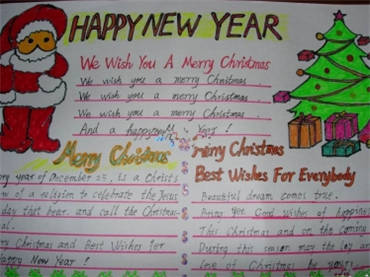 HAPPY NEW YEAR
We Wish You A Merry Christmas
We wish you a merry Christmas
We wish you a merry Christmas.
We wish you a merry Christmas.
And a happy Year!
Merry Christmas
year of December 25, is a Christ
of a religion to celebrate the Jesus
day that hear. and call the Christmas
Christmas and Best Wishes for
Happy New Year!
Merry Christmas
Best Wishes For Everybody
Beautiful dream comes true.
Bring you Good Wishes of happine
This Christmas and on the coming
During this season may the joy an
love of Christmas be yours.